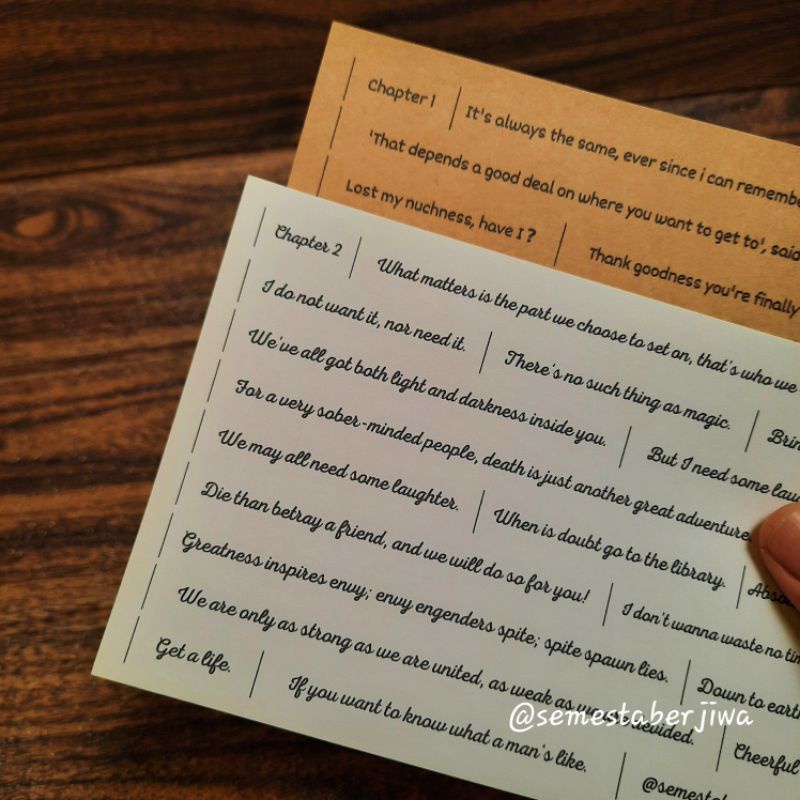 Chapter 1 | It's always the same, ever since i can remembe
'That depends a good deal on where you want to get to', said
Lost my nuchness, have I? | Thank goodness you're finally
Chapter 2 | What matters is the part we choose to set on, that's who we
I do not want it, nor need it. | There's no such thing as magic. | Brin
We've all got both light and darkness inside you. | But I need some lau
For a very sober-minded people, death is just another great adventure
We may all need some laughter. | When is doubt go to the library. | Abso
Die than betray a friend, and we will do so for you! | I don't wanna waste no tim
Greatness inspires envy; envy engenders spite; spite spawn lies. | Down to earth
We are only as strong as we are united, as weak as we are devided. | Cheerful
Get a life. | If you want to know what a man's like. | @semesta
@semestaberjiwa